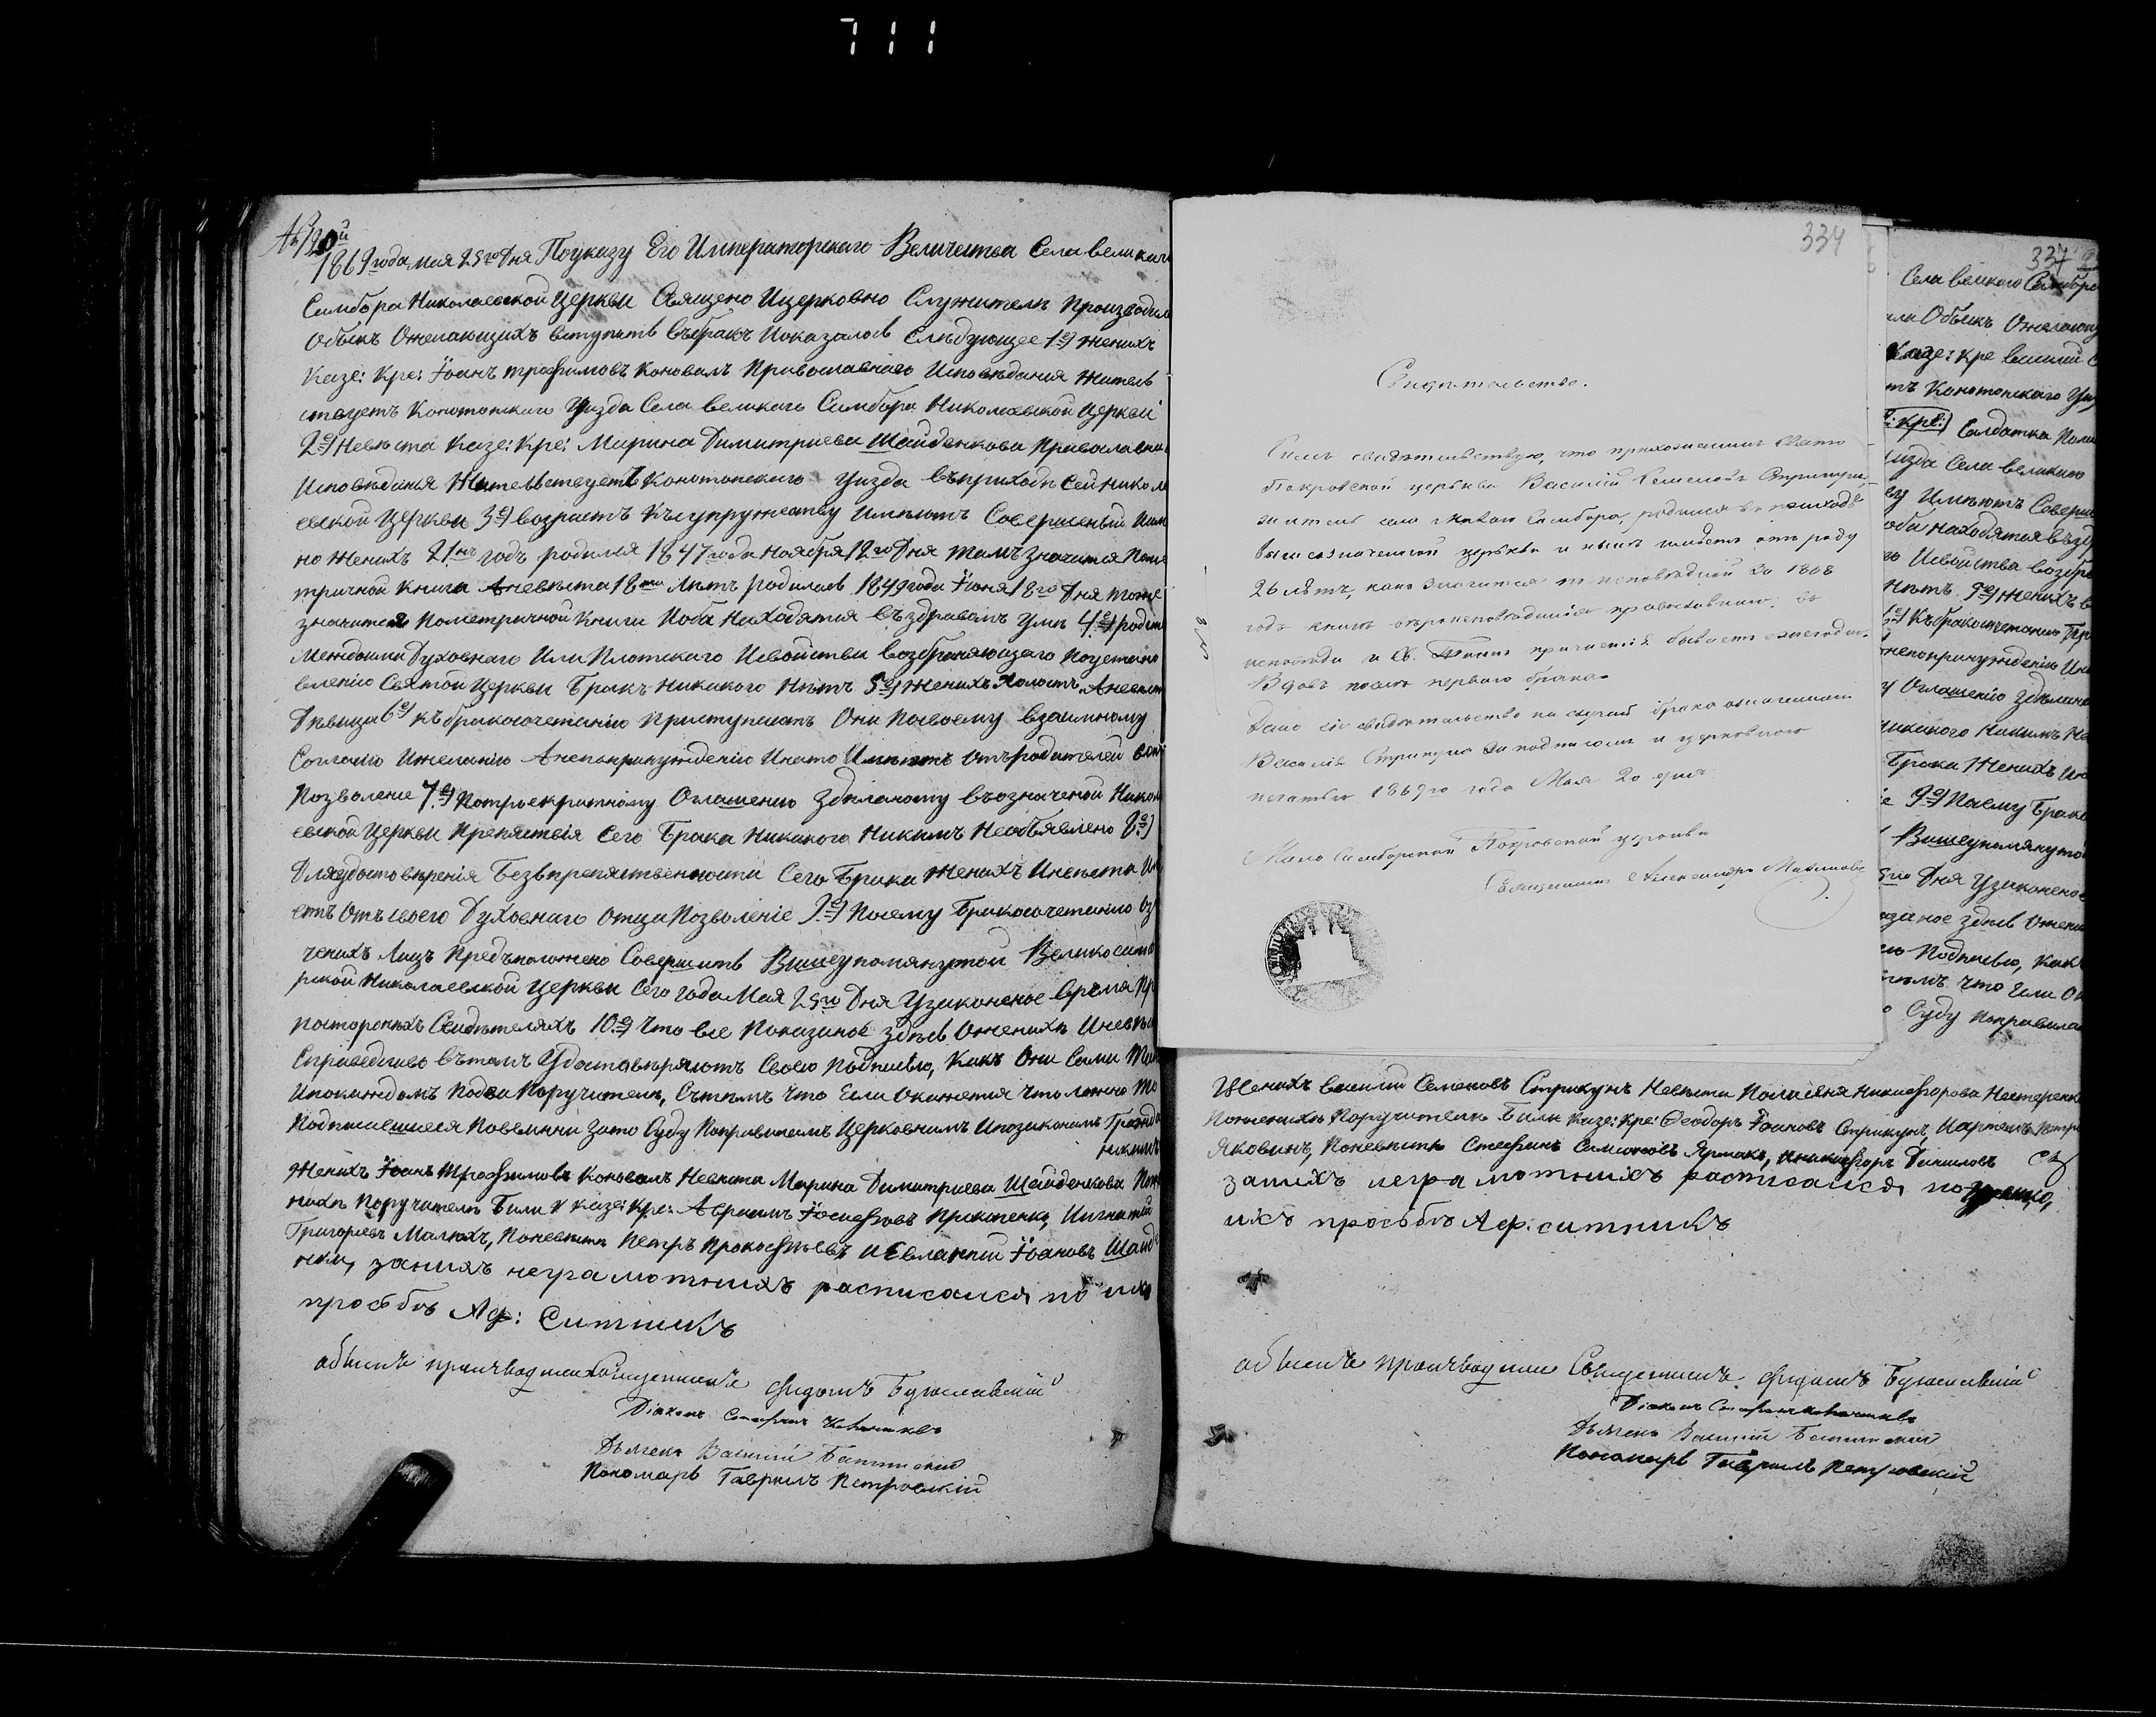 711
1869 года мая 25го Дня Поуказу Его Императорского Величества Села велико
Самбора Николаевской Церкви Священо Ицерковно Служители Произвоdили
Обыкъ Ожелающихъ вступить въбракъ Ипоказалось Слѣдующее 1е) женихъ
Казе: Кре: Іоанъ трофимовъ Коновалъ Православнаго Исповѣдания жител
ствуетъ Конотопскаго Уизда Села великого Самбора Николаевской Церкви
2е) Невѣста Казе: Кре: Марина Димитриева Шайденкова Православна
Исповѣданья Жительствуетъ Конотопского Уизда въприходи Сей Никол
евской Церкви 3е) возрастъ Ксупружеству Имѣютъ Совершеный Имѣ
но женихъ 21нъ годъ родился 1847 года Ноября 12го Дня тамъ значится Поме
тричной Книги Аневѣста 18ти Лѣтъ родилась 1849 года Іюня 18го Дня тоже
значится Пометричной Книги Иоба Находятся въздравомъ Уми 4е) родст
Междоими Духовнаго Или Плотского Исвойства возбраняющаго Поустано
влению Святой Церкви Бракъ Никакого Нѣтъ 5е) Женихъ Холостъ, Аневѣст
Дѣвица 6е) къбракосочетанию Приступаютъ Они Посвоему взаимному
Согласию Ижеланию Анепопринуждению Инато Имѣютъ Отъродителей
Позволение 7е) Потроекратному Оглашению Здѣланому въозначеной Никол
евской Церкви Препятствія Сего Брака Никакого Никимъ Необъявлено 8е)
Дляудостоверения Безвпрепятственности Сего Брака Женихъ Иневѣста Им
етъ Отъсвоего Духовнаго Отца Позволеніе 9е) Посему Бракосочетанию Оз
ченихъ Лицъ Предположено Совершить Вишеупомянутой Великосамбо
рской Николаевской Церкви Сего года Мая 25го Дня Узаконеное Время Пр
посторонихъ Свидѣтеляхъ 10е) Что все Показаное здѣсь Оженихѣ Иневѣ
Справедливо Вътомъ Удостовѣряютъ Своею Подписью, Какъ Они Сами Так
Ипокаждомъ Подва Поручителя, Сътѣмъ Что Если Окажется Что ложно То
Подписавшиеся Повинни Зато Суду Поправиламъ Церковнимъ Ипозаконамъ Гражда
нскимъ
Женихъ Іоанъ Трофимовъ Коновалъ Невѣста Марина Димитриева Шайденкова По
нихѣ Поручители Били Казе: Кре: Аврамъ Іосифовъ Прокопенко, Игнатій
Григориевъ Малюхъ, Поневѣсти Петръ Прокофьевъ ИЕвлампий Іоановъ Шайд
нки, занихъ неграмотнихъ расписался по ихъ
просьбѣ Аф: Ситникъ
обыскъ производили Священникъ Фидотъ Буяславскій
Діаконъ Стефанъ
Дьячекъ Василий
Пономаръ Гаврилъ Петровскій
334
Свидѣтельство.
Симъ свидѣтельствую, что прихожанинъ Свято
Покровской церькви Василій Семеновъ Стрикун
житель села Малого Самбора, родился въ приходѣ
вышеозначенной церькви и нынѣ имѣетъ отъ роду
26 лѣтъ, какъ значится по исповѣдной за 1868
годъ книги вѣроисповѣданія православнаго; въ
исповѣди и Св. Таинъ причастія бываетъ ежегодно.
Вдовъ послѣ перваго брака.
Дано сіе свидѣтельство на случай брака означенному
Василію Стрикуну за подписомъ и церковною
печатью 1869го года Мая 20 дня.
Мало Самборской Покровской церкви
Священникъ Александръ
337
Села великого Самбора
или Обыкъ Ожелающ
Казе: Кре василий С
тъ Конотопского Уи
: Кре: Салдатка Пола
Уизда Села великого
ву Имѣютъ Соверш
оба находятся въздр
го Исвойства возбра
Нѣтъ 5е) Женихъ в
6е) Къбракосочетанию Пр
непопринуждению Ин
у Оглашению Здѣлано
никакого Никимъ Не
Брака Женихъ Ин
е 9е) Посему Брако
Вишеупомянуто
5го Дня Узаконеное
азаное здѣсь Ожени
ею Подписью, Какъ
тѣмъ Что Если Ок
о Суду Поправила
Женихъ василий Семеновъ Стрикунъ Невѣста Поликсія Никифорова Нестеренк
Поженихѣ Поручители Били Казе: Кре: Феодоръ Іоановъ Стрикунъ, Иартемъ Петр
Яковинъ, Поневѣсти Стефанъ Самойловъ Ярмакъ, Иникифоръ Даниловъ
занихъ неграмотнихъ расписался по
ихъ просьбѣ Аф: ситникъ
обыскъ производили Священникъ Фидотъ Буяславскій
Діаконъ Стефанъ
Дьячекъ Василий
Пономаръ Гаврилъ Петровскій